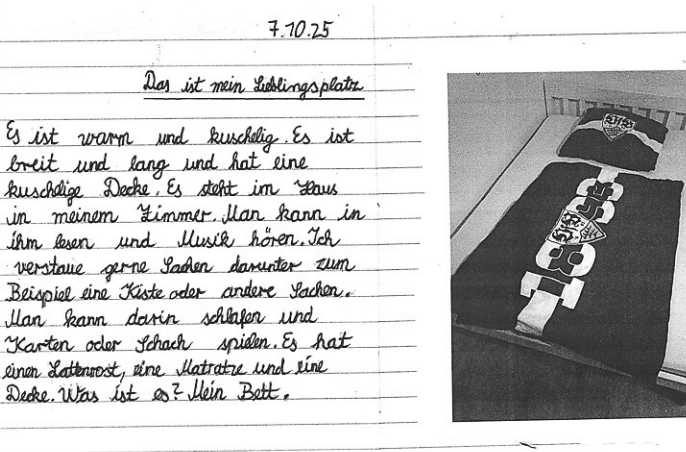 7.10.25
Das ist mein Lieblingsplatz
Es ist warm und kuschelig. Es ist
breit und lang und hat eine
kuschelige Decke. Es steht im Haus
in meinem Zimmer. Man kann in
ihm lesen und Musik hören. Ich
verstaue gerne Sachen darunter zum
Beispiel eine Kiste oder andere Sachen.
Man kann darin schlafen und
Karten oder Schach spielen. Es hat
einen Lattenrost, eine Matratze und eine
Decke. Was ist es? Mein Bett.
1893